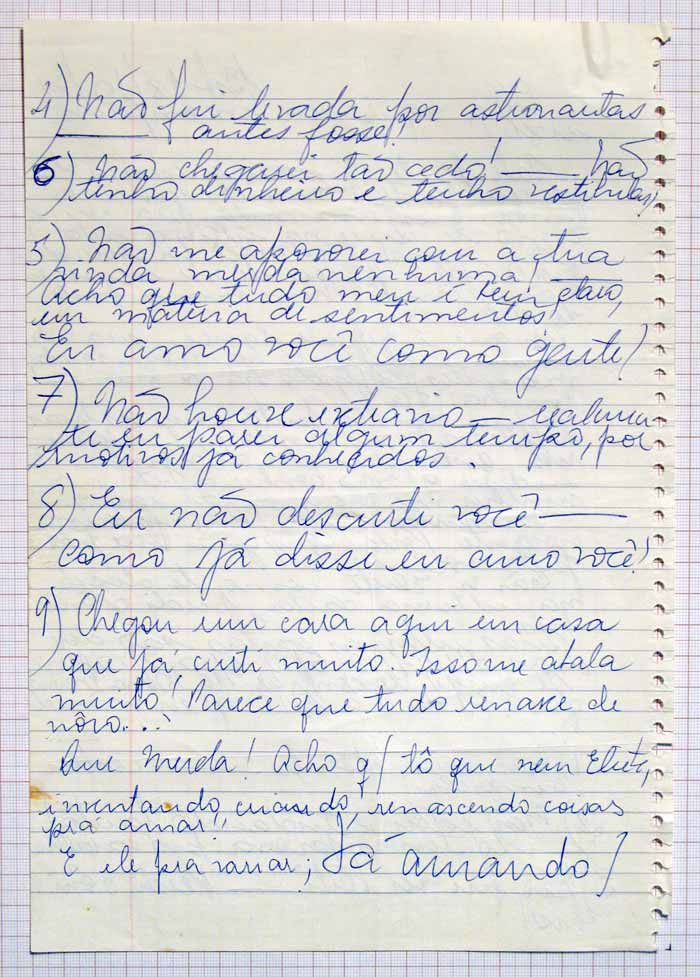 4) Não fui levada por astronautas
—— antes fosse!
6) Não chegarei tão cedo! —— Não
tenho dinheiro e tenho vestibular,
5) Não me apavorei com a tua
vinda merda nenhuma!
Acho que tudo meu é bem claro,
em matéria de sentimentos!
Eu amo você como gente!
7) Não houve extravio — realmen
te eu parei algum tempo, por
motivos já conhecidos.
8) Eu não descurti você ——
como já disse eu amo você!
9) Chegou um cara aqui em casa
que já curti muito. Isso me abala
muito! Parece que tudo renasce de
nôvo...
Que Merda! Acho q/ tô que nem
inventando, criando, renascendo coisas
prá amar!!
E ele pra variar; Tá amando!